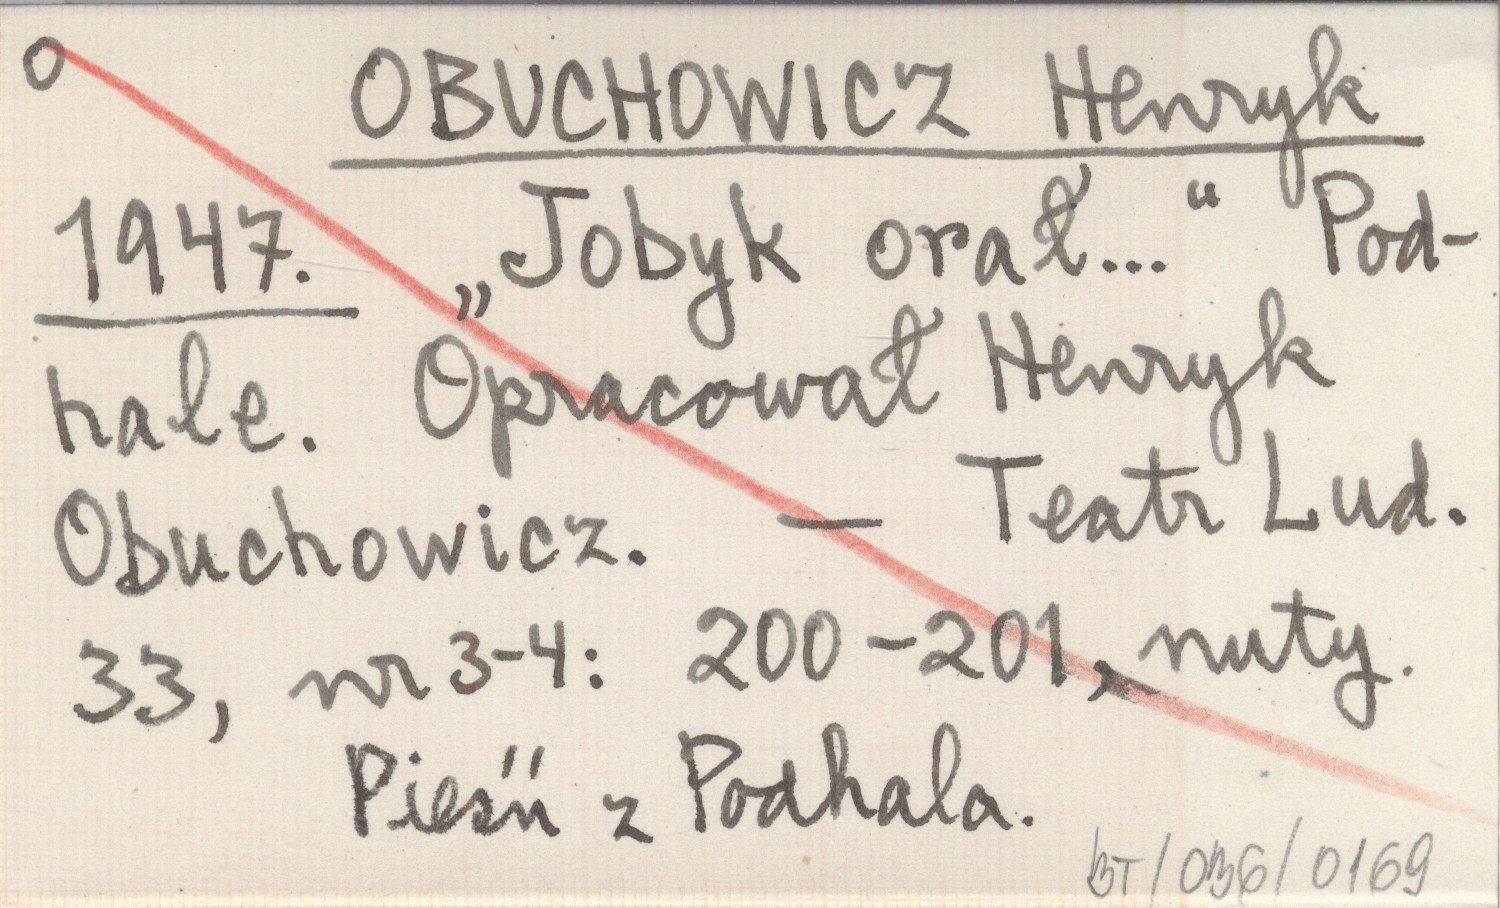 O OBUCHOWICZ Henryk
1947. „Jobyk orał..." Pod-
hale. Opracował Henryk
Obuchowicz. — Teatr Lud.
33, nr 3-4: 200-201, nuty.
Pieśń z Podhala.
BT/036/0169